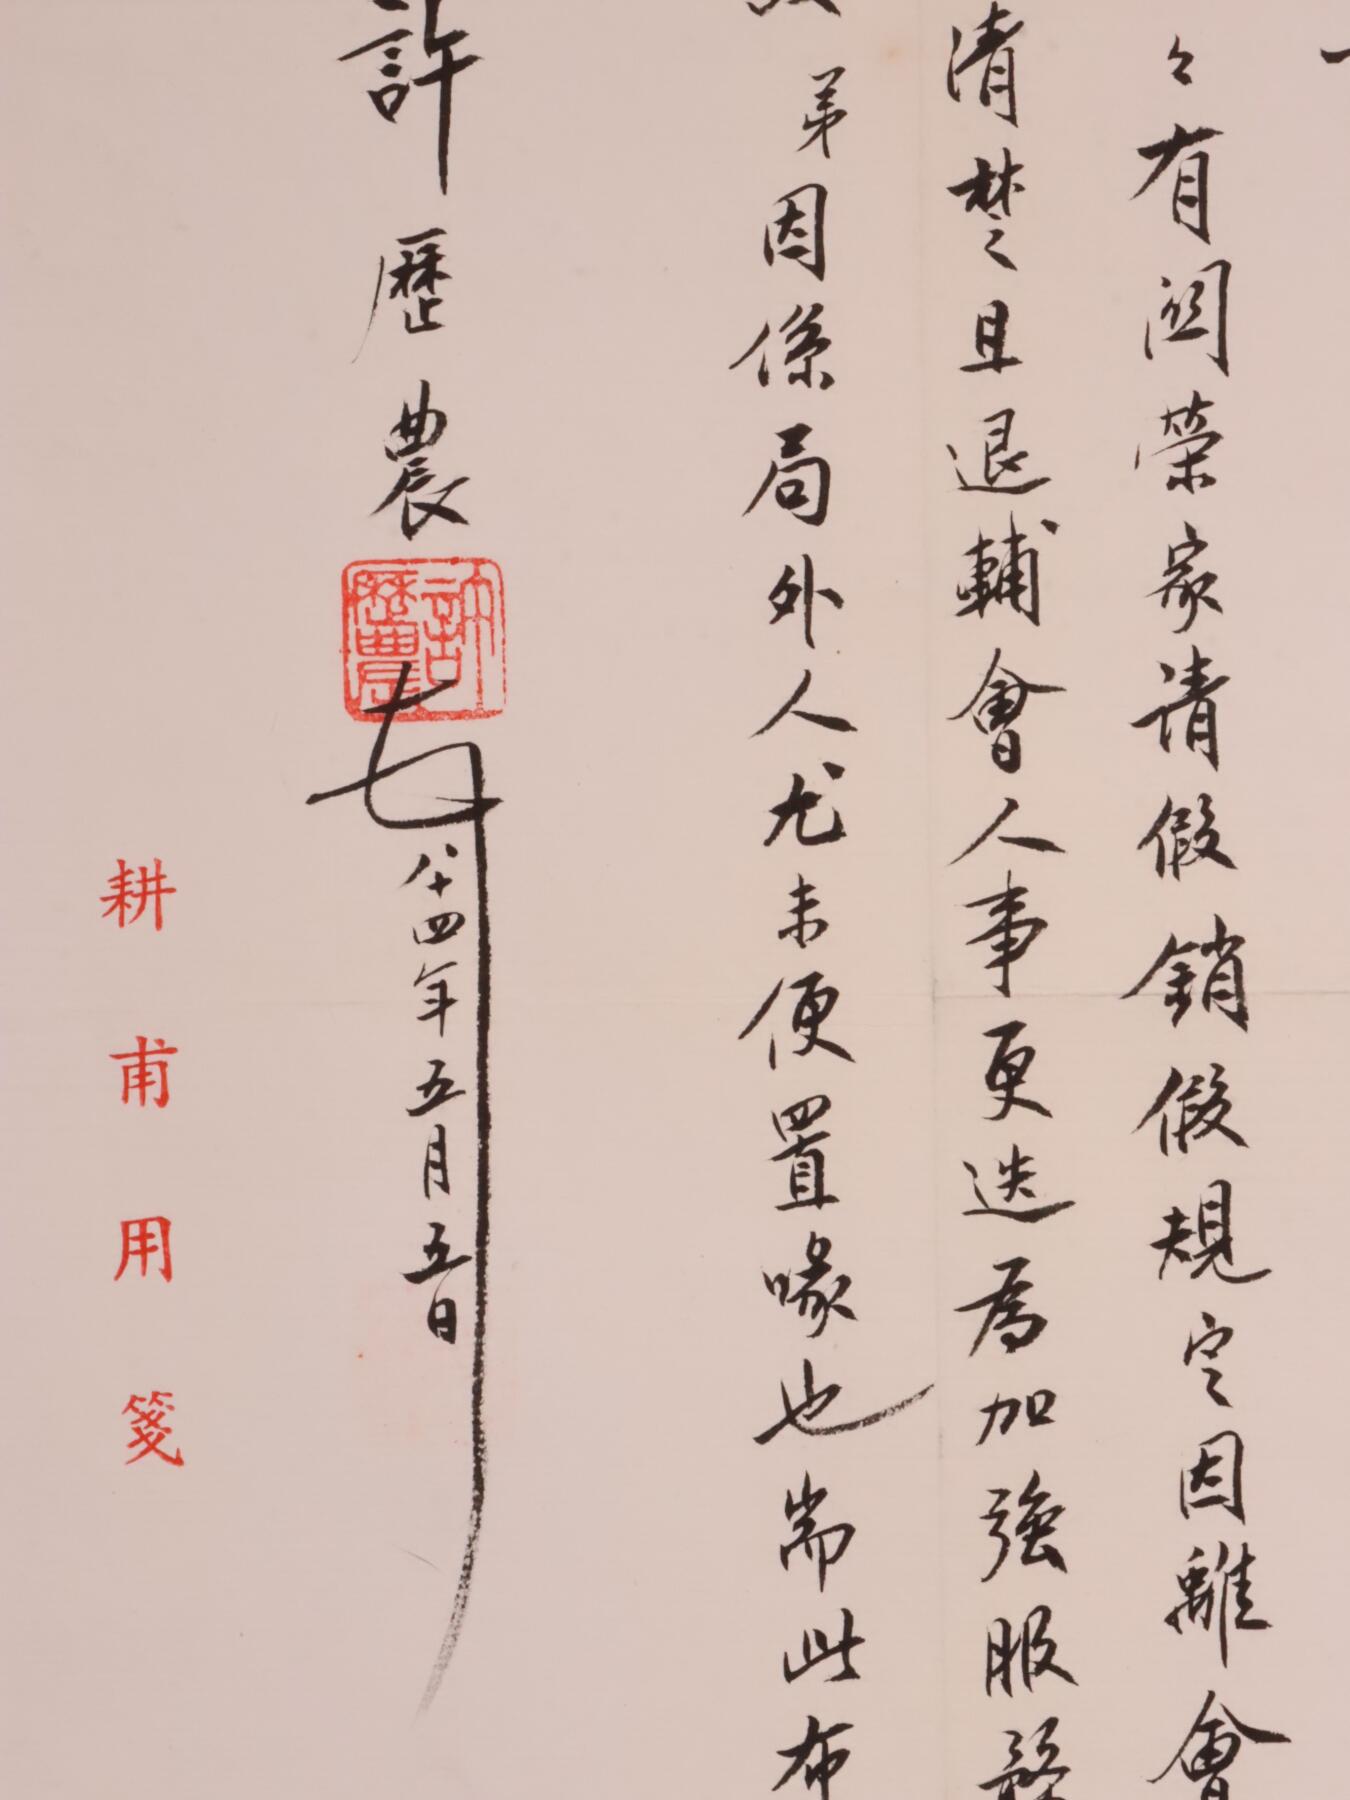 々有関榮家請假銷假規定因離會
清楚且退輔會人事更迭為加強服務
弟因係局外人尤未便置喙也耑此布
許歷農
許歷農
八十四年五月五日
耕甫用箋